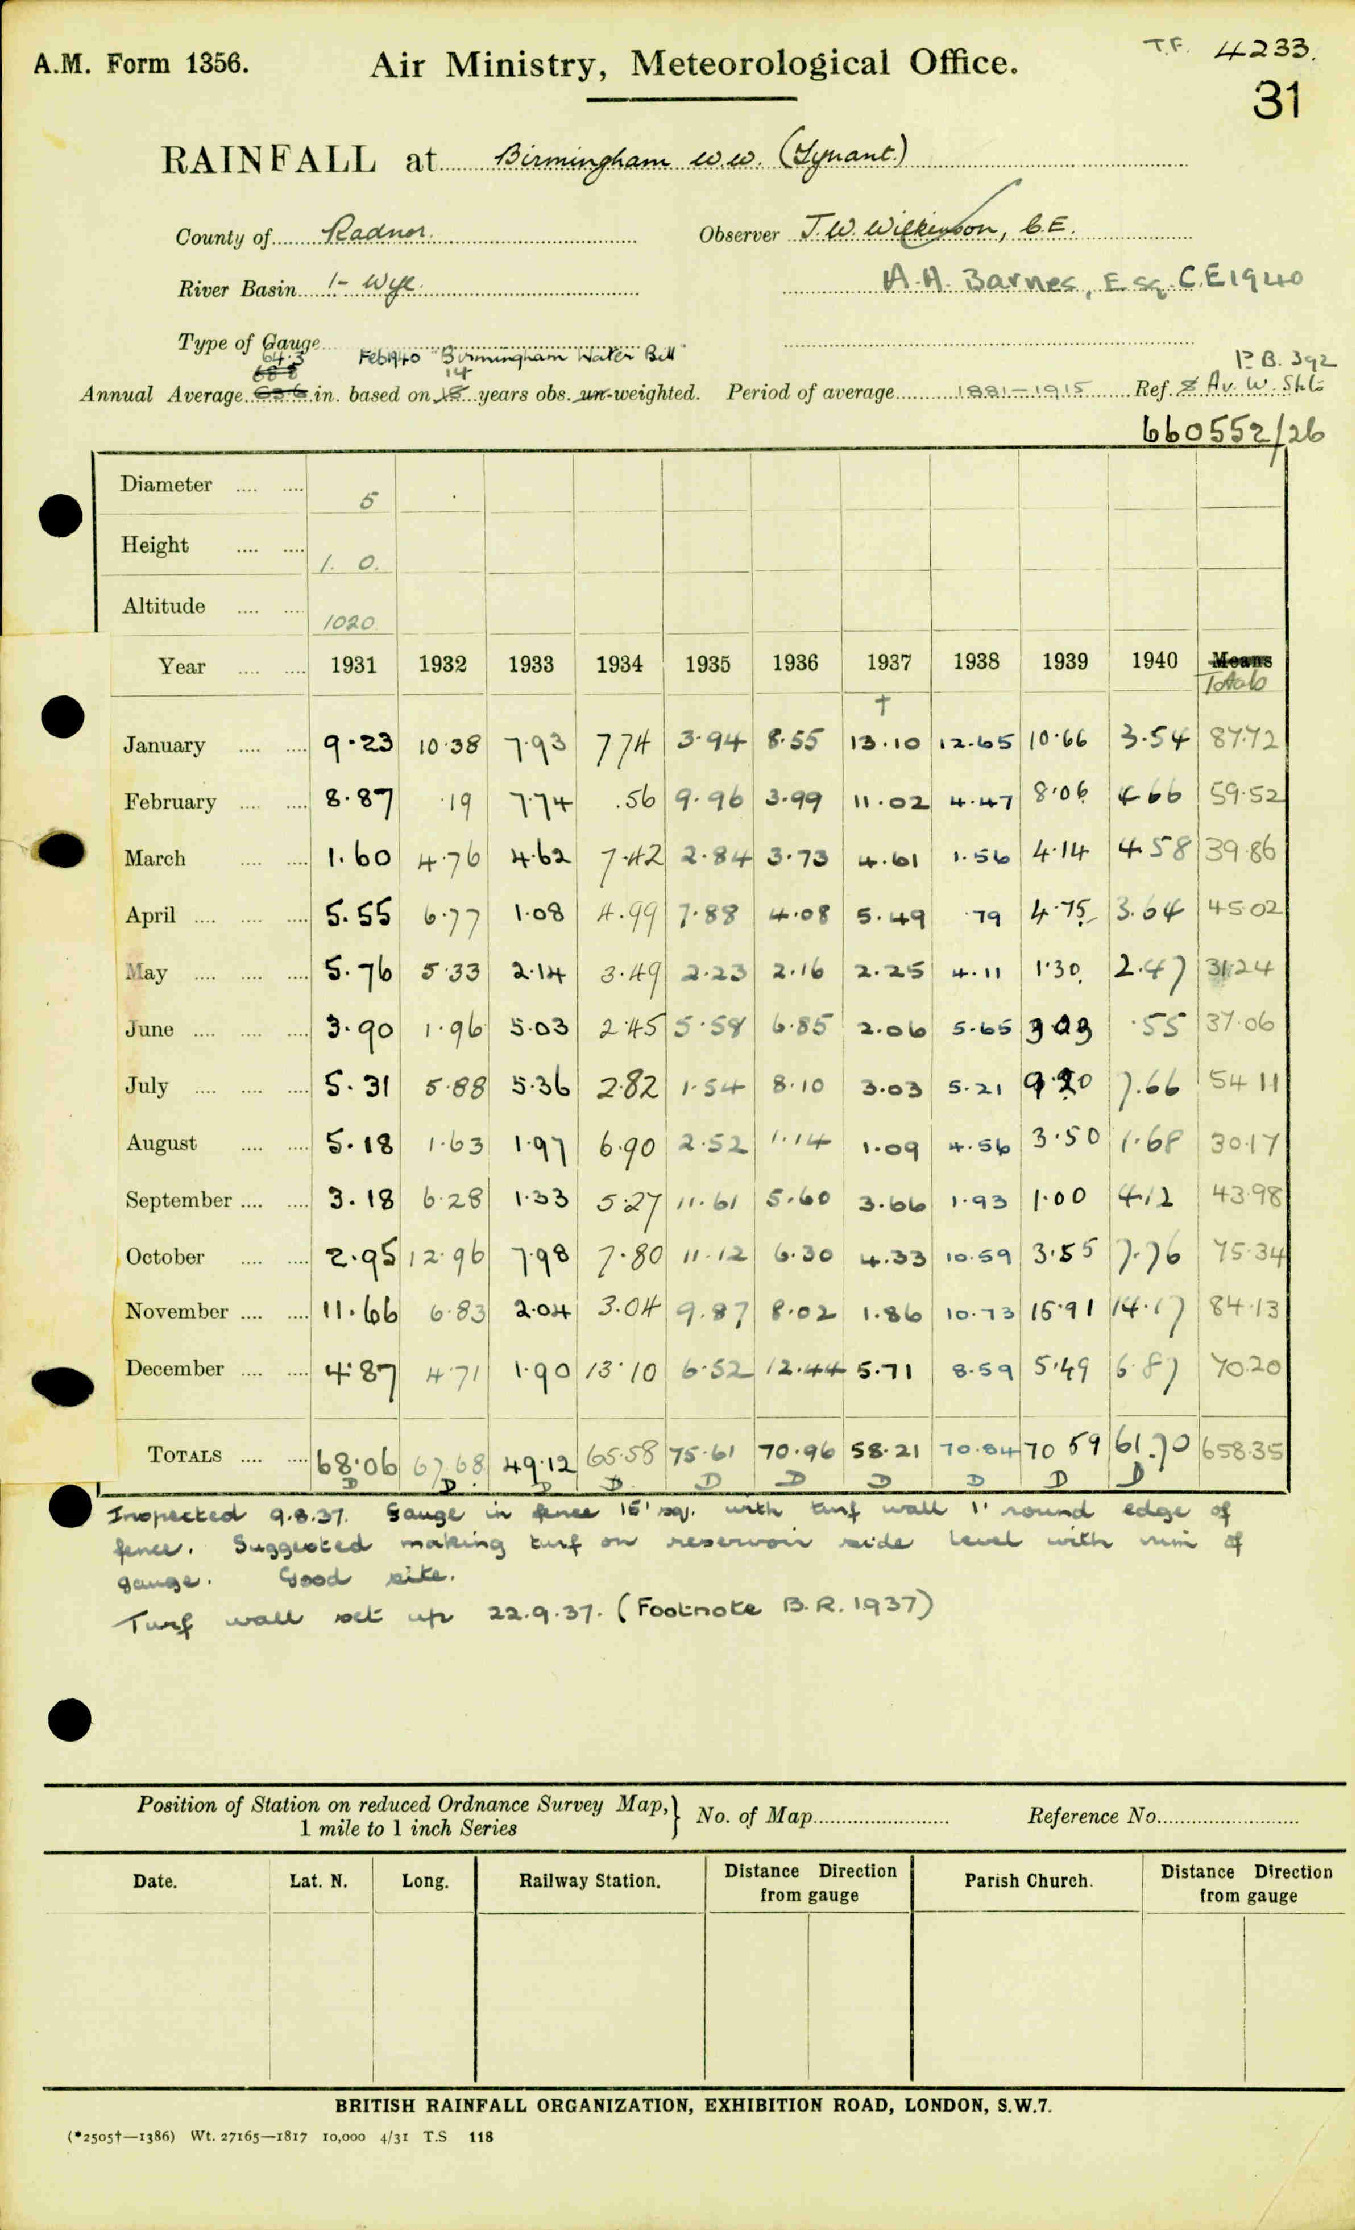 A.M. Form 1356.
Air Ministry, Meteorological Office.
T.F. 4233.
31
RAINFALL at Birmingham W.W. (Tynant)
County of Radnor.
Observer J.W. Wilkinson, C.E.
River Basin 1- Wye
A.A. Barnes, Esq. C.E 1940
Type of Gauge
64.3 Feb 1940 "Birmingham Water Bill" P.B. 392
68.8 14
Annual Average 63.6 in. based on 18 years obs. un-weighted. Period of average 1881-1915 Ref. & Av. W. Shts
660552/26
Diameter 5
Height 1. 0.
Altitude 1020
Year 1931 1932 1933 1934 1935 1936 1937 1938 1939 1940 Means
† Totals
January 9.23 10.38 7.93 7 74 3.94 8.55 13.10 12.65 10.66 3.54 87.72
February 8.87 .19 7.74 .56 9.96 3.99 11.02 4.47 8.06 4 66 59.52
March 1.60 4.76 4.62 7.42 2.84 3.73 4.61 1.56 4.14 4.58 39.86
April 5.55 6.77 1.08 4.99 7.88 4.08 5.49 .79 4.75 3.64 45.02
May 5.76 5.33 2.14 3.49 2.23 2.16 2.25 4.11 1.30 2.47 31.24
June 3.90 1.96 5.03 2.45 5.58 6.85 2.06 5.65 3.03 .55 37.06
July 5.31 5.88 5.36 2.82 1.54 8.10 3.03 5.21 9.20 7.66 54 11
August 5.18 1.63 1.97 6.90 2.52 1.14 1.09 4.56 3.50 1.68 30.17
September 3.18 6.28 1.33 5.27 11.61 5.60 3.66 1.93 1.00 4.12 43.98
October 2.95 12.96 7.98 7.80 11.12 6.30 4.33 10.59 3.55 7.76 75.34
November 11.66 6.83 2.04 3.04 9.87 8.02 1.86 10.73 15.91 14.17 84.13
December 4.87 4.71 1.90 13.10 6.52 12.44 5.71 8.59 5.49 6.87 70.20
TOTALS 68.06 67.68 49.12 65.58 75.61 70.96 58.21 70.84 70 59 61.70 658.35
D D D D D D D D D D
Inspected 9.8.37. Gauge in fence 15' sq. with turf wall 1' round edge of
fence. Suggested making turf on reservoir side level with rim of
gauge. Good site.
Turf wall set up 22.9.37. (Footnote B.R. 1937)
Position of Station on reduced Ordnance Survey Map,} No. of Map Reference No.
1 mile to 1 inch Series
Date. Lat. N. Long. Railway Station. Distance Direction Parish Church. Distance Direction
from gauge from gauge
BRITISH RAINFALL ORGANIZATION, EXHIBITION ROAD, LONDON, S.W.7.
(*2505†—1386) Wt. 27165—1817 10,000 4/31 T.S 118